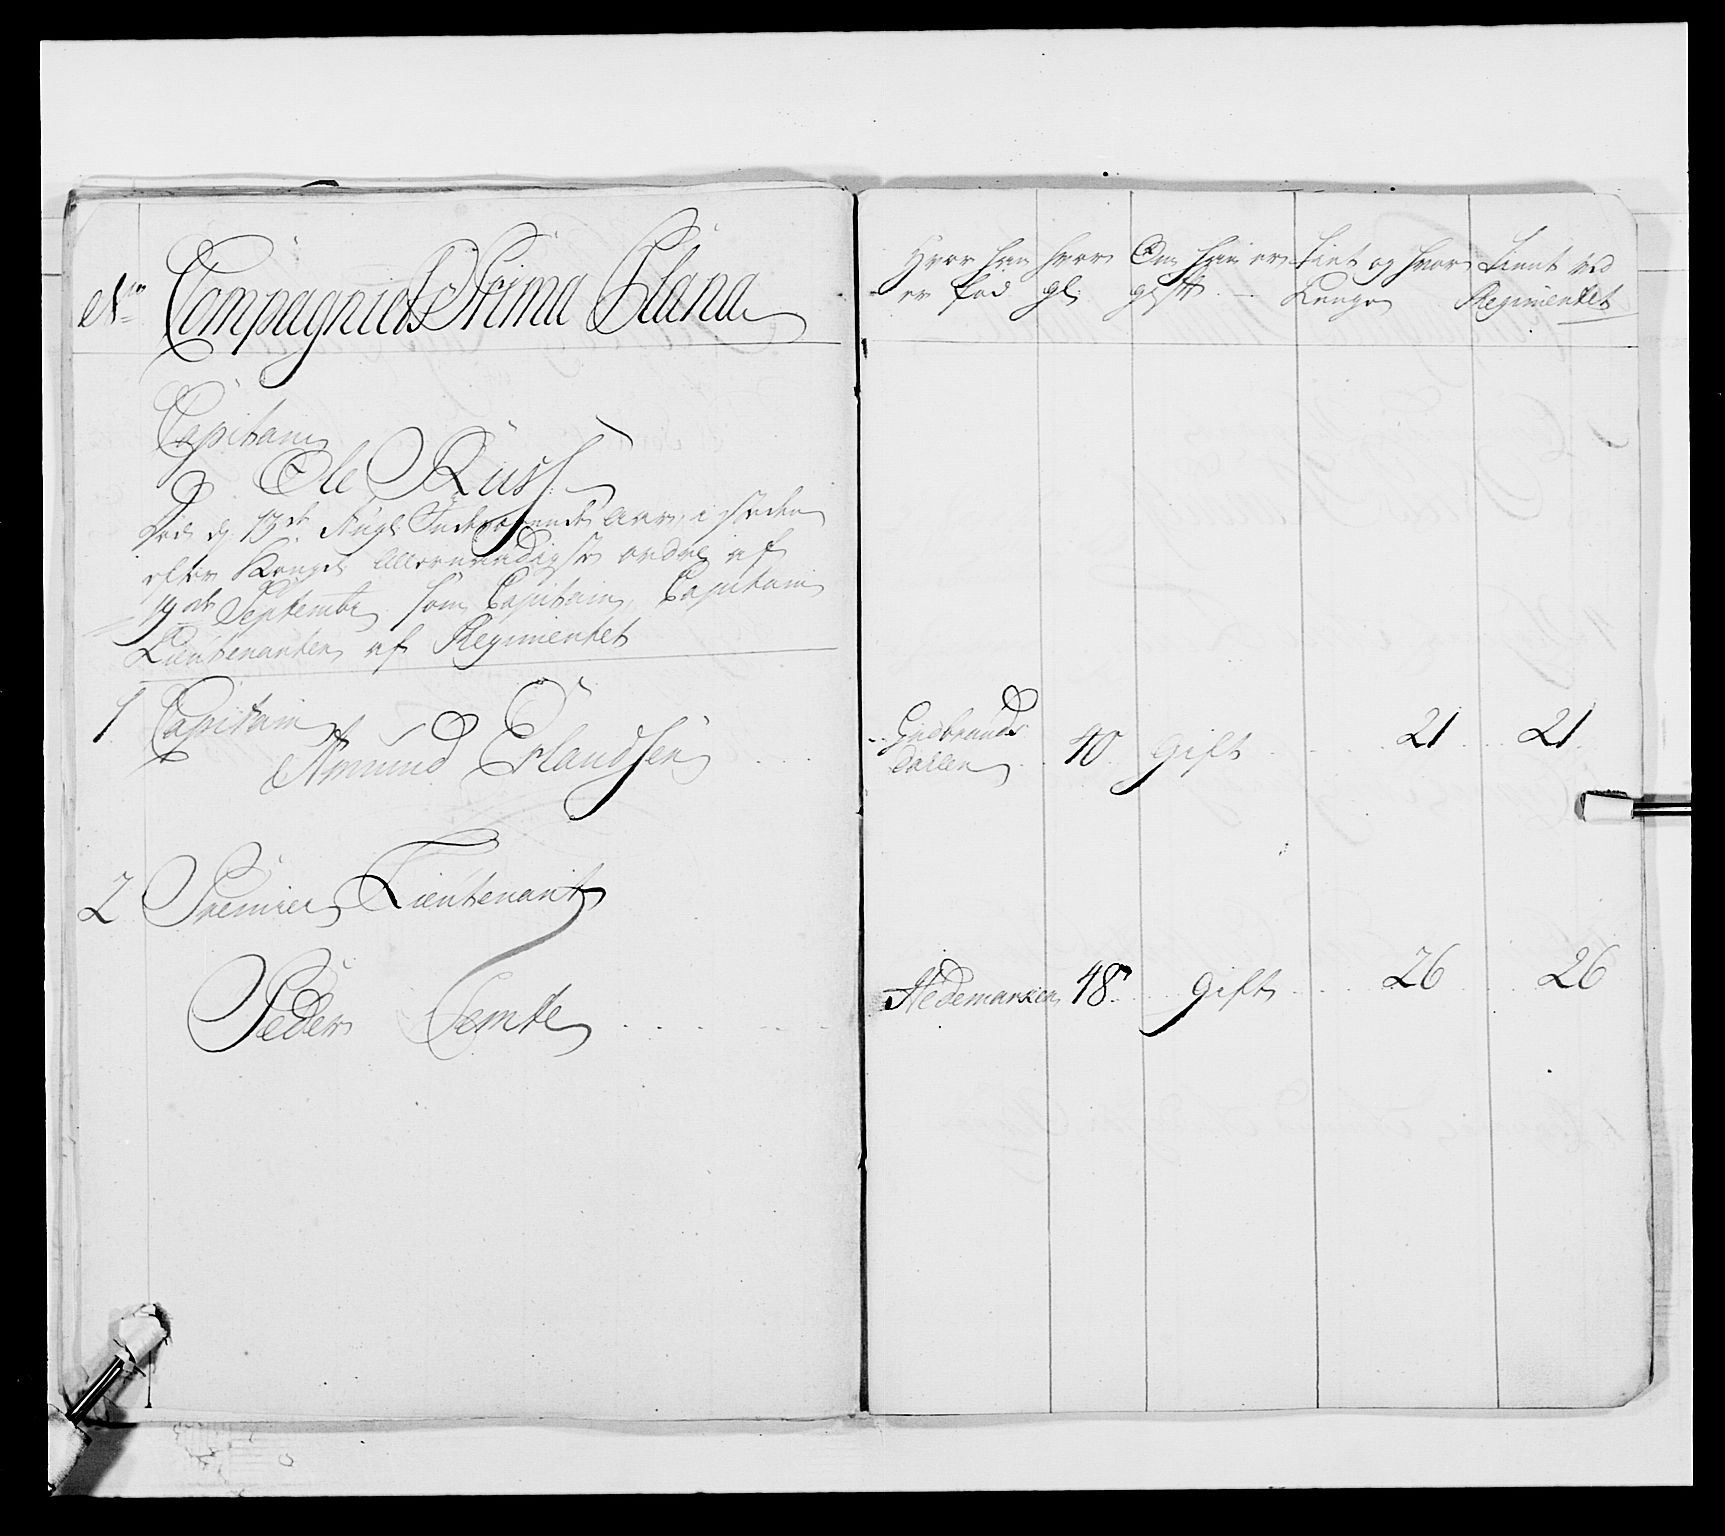 No Compagniets Prima Plana
Capitain
Ole Russ
Død d: 13de Augt: Indeværende Aar, i steden
efter Kongel: Allernaadigste ordre af
19de Septembr: som Capitain, Capitain
Lieutenanten af Regimentet
1 Capitain
Amund Erlandsen
2 Premier Lieutenant
Peder Temte
Hvor han er fød
hvor gl:
Om han er gift
Tient og hvor Lenge
Tient ved Regimentet
Gudbrands
dallen 40 gift 21 21
Hedemarken 48 gift 26 26